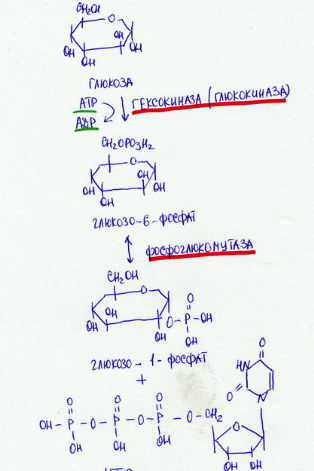 CH₂OH
O
OH
OH
OH
OH
ГЛЮКОЗА
АТР
ГЕКСОКИНАЗА (ГЛЮКОКИНАЗА)
АДР
CH₂OPO₃H₂
O
OH
OH
OH
OH
ГЛЮКОЗО-6-ФОСФАТ
ФОСФОГЛЮКОМУТАЗА
CH₂OH
O
O
OH
OH
O-P-OH
OH
OH
ГЛЮКОЗО-1-ФОСФАТ
+
O
HN
O
N
O O O
OH-P-O-P-O-P-O-CH₂
OH OH OH
O
OH OH